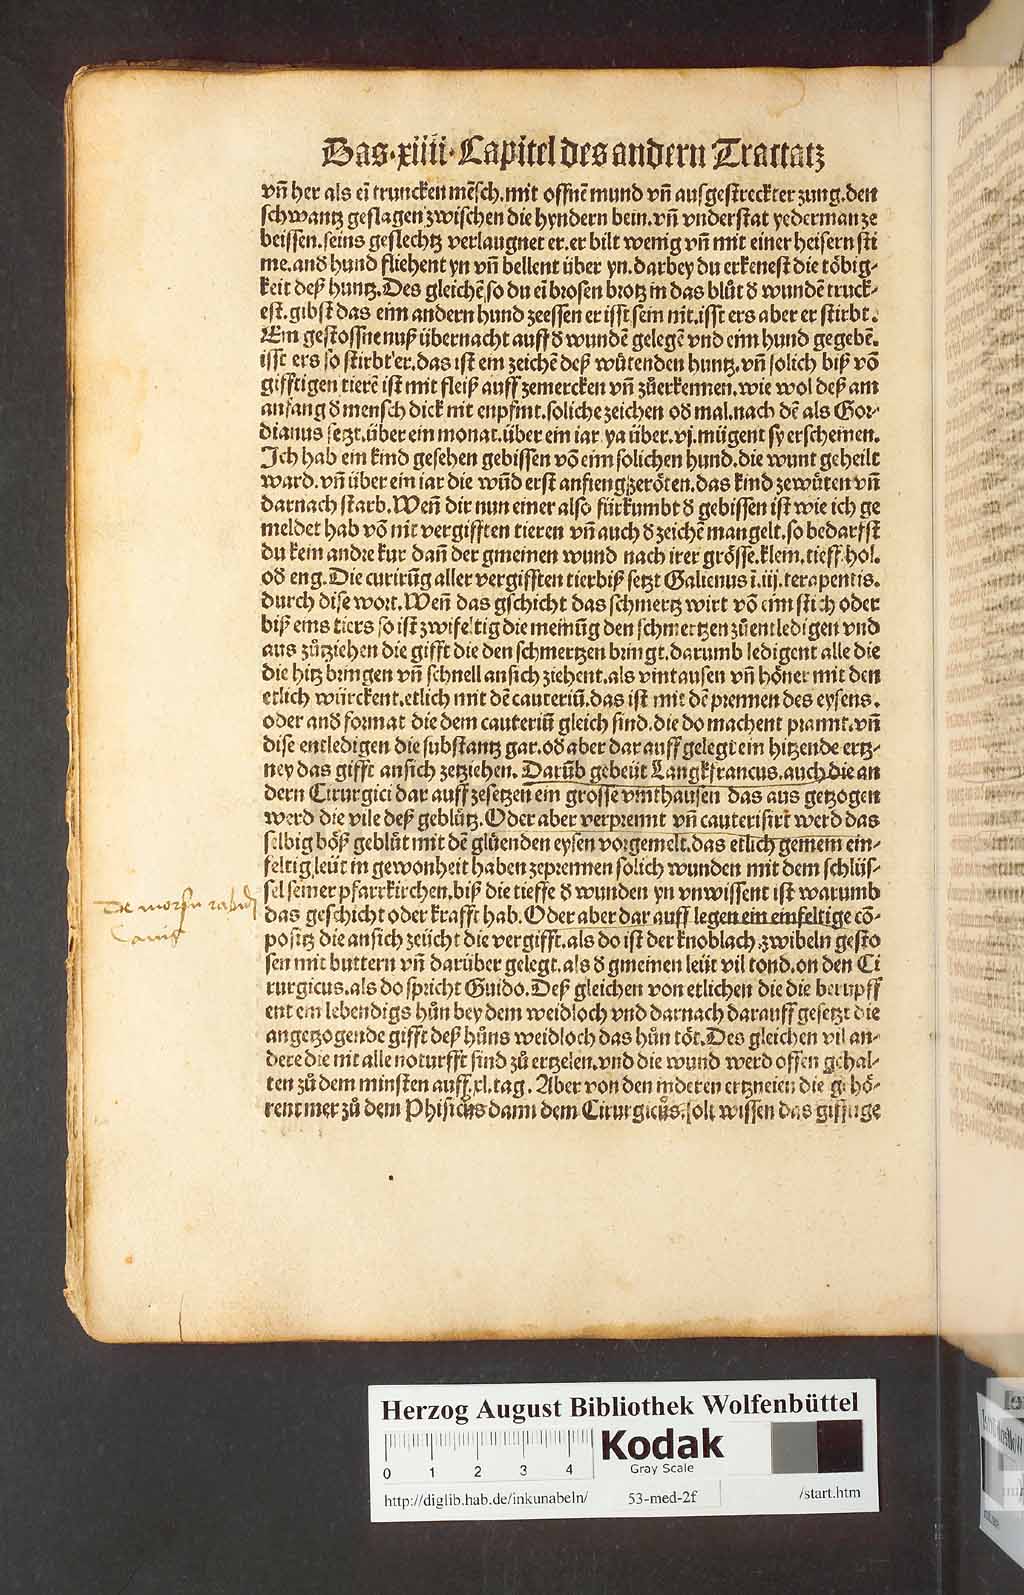 Das·xiiii·Capitel des andern Tractatz
vñ her als eī truncken mēsch.mit offnē mund vñ ausgestreckter zung.den
schwantz geslagen zwischen die hyndern bein.vñ vnderstat yederman ze
beissen.seins geslechtz verlaugnet er.er bilt wenig vñ mit einer heisern sti
me.and hund fliehent yn vñ bellent über yn.darbey du erkenest die töbig-
keit deß huntz.Des gleichē so du eī brosen brotz in das blůt d wundē truck-
est.gibst das eim andern hund zeessen er isst sein nit.isst ers aber er stirbt.
Ein gestossne nuß übernacht auff d wundē gelegē vnd eim hund gegebē.
isst ers so stirbt er.das ist ein zeichē deß wütenden huntz.vñ solich biß vō
gifftigen tierē ist mit fleiß auff zemercken vñ zůerkennen.wie wol deß am
anfang d mensch dick nit enpfint.soliche zeichen od mal.nach dē als Gor-
dianus setzt.über ein monat.über ein iar ya über.vj.mügent sy erscheinen.
Ich hab ein kind gesehen gebissen vō eim solichen hund.die wunt geheilt
ward.vñ über ein iar die wūd erst anfieng zeröten.das kind zewüten vñ
darnach starb.Weñ dir nun einer also fürkumbt d gebissen ist wie ich ge
meldet hab vō nit vergifften tieren vñ auch d zeichē mangelt.so bedarfst
du kein andre kur dañ der gmeinen wund nach irer grösse.klein.tieff.hol.
od eng.Die curirūg aller vergifften tierbiß setzt Galienus ī.iij.terapentis.
durch dise wort.Weñ das gschicht das schmertz wirt vō eim stich oder
biß eins tiers so ist zwifeltig die meinūg den schmertzen zů entledigen vnd
aus zůtziehen die gifft die den schmertzen bringt.darumb ledigent alle die
die hitz bringen vñ schnell ansich ziehent.als vintausen vñ höner mit den
etlich würckent.etlich mit dē cauteriū.das ist mit dē prennen des eysens.
oder and format die dem cauteriū gleich sind.die do machent prannt.vñ
dise entledigen die substantz gar.od aber dar auff gelegt ein hitzende ertz-
ney das gifft ansich zetziehen.Darūb gebeüt Langkfrancus.auch die an
dern Cirurgici dar auff zesetzen ein grosse vinthausen das aus getzogen
werd die vile deß geblůtz.Oder aber verprennt vñ cauterisirt werd das
selbig böß geblüt mit dē glüenden eysen vorgemelt.das etlich gemein ein-
feltig leüt in gewonheit haben zeprennen solich wunden mit dem schlüs-
sel seiner pfarrkirchen.biß die tieffe d wunden yn vnwissent ist warumb
das geschicht oder krafft hab.Oder aber dar auff legen ein einfeltige cō-
positz die ansich zeücht die vergifft.als do ist der knoblach.zwibeln gesto
sen mit buttern vñ darüber gelegt.als d gmeinen leüt vil tond.on den Ci
rurgicus.als do spricht Guido.Deß gleichen von etlichen die die berupff
ent ein lebendigs hůn bey dem weidloch vnd darnach darauff gesetzt die
angetzogende gifft deß hůns weidloch das hůn töt.Des gleichen vil an-
dere die nit alle noturfft sind zů ertzelen.vnd die wund werd offen gehal-
ten zů dem minsten auff.xl.tag.Aber von den inderen ertzneien die gehö-
rent mer zů dem Phisicůs dann dem Cirurgicůs.solt wissen das gifftige
De morsu rabidi
Canis
Herzog August Bibliothek Wolfenbüttel
0 1 2 3 4
Kodak
Gray Scale
http://diglib.hab.de/inkunabeln/ 53-med-2f /start.htm